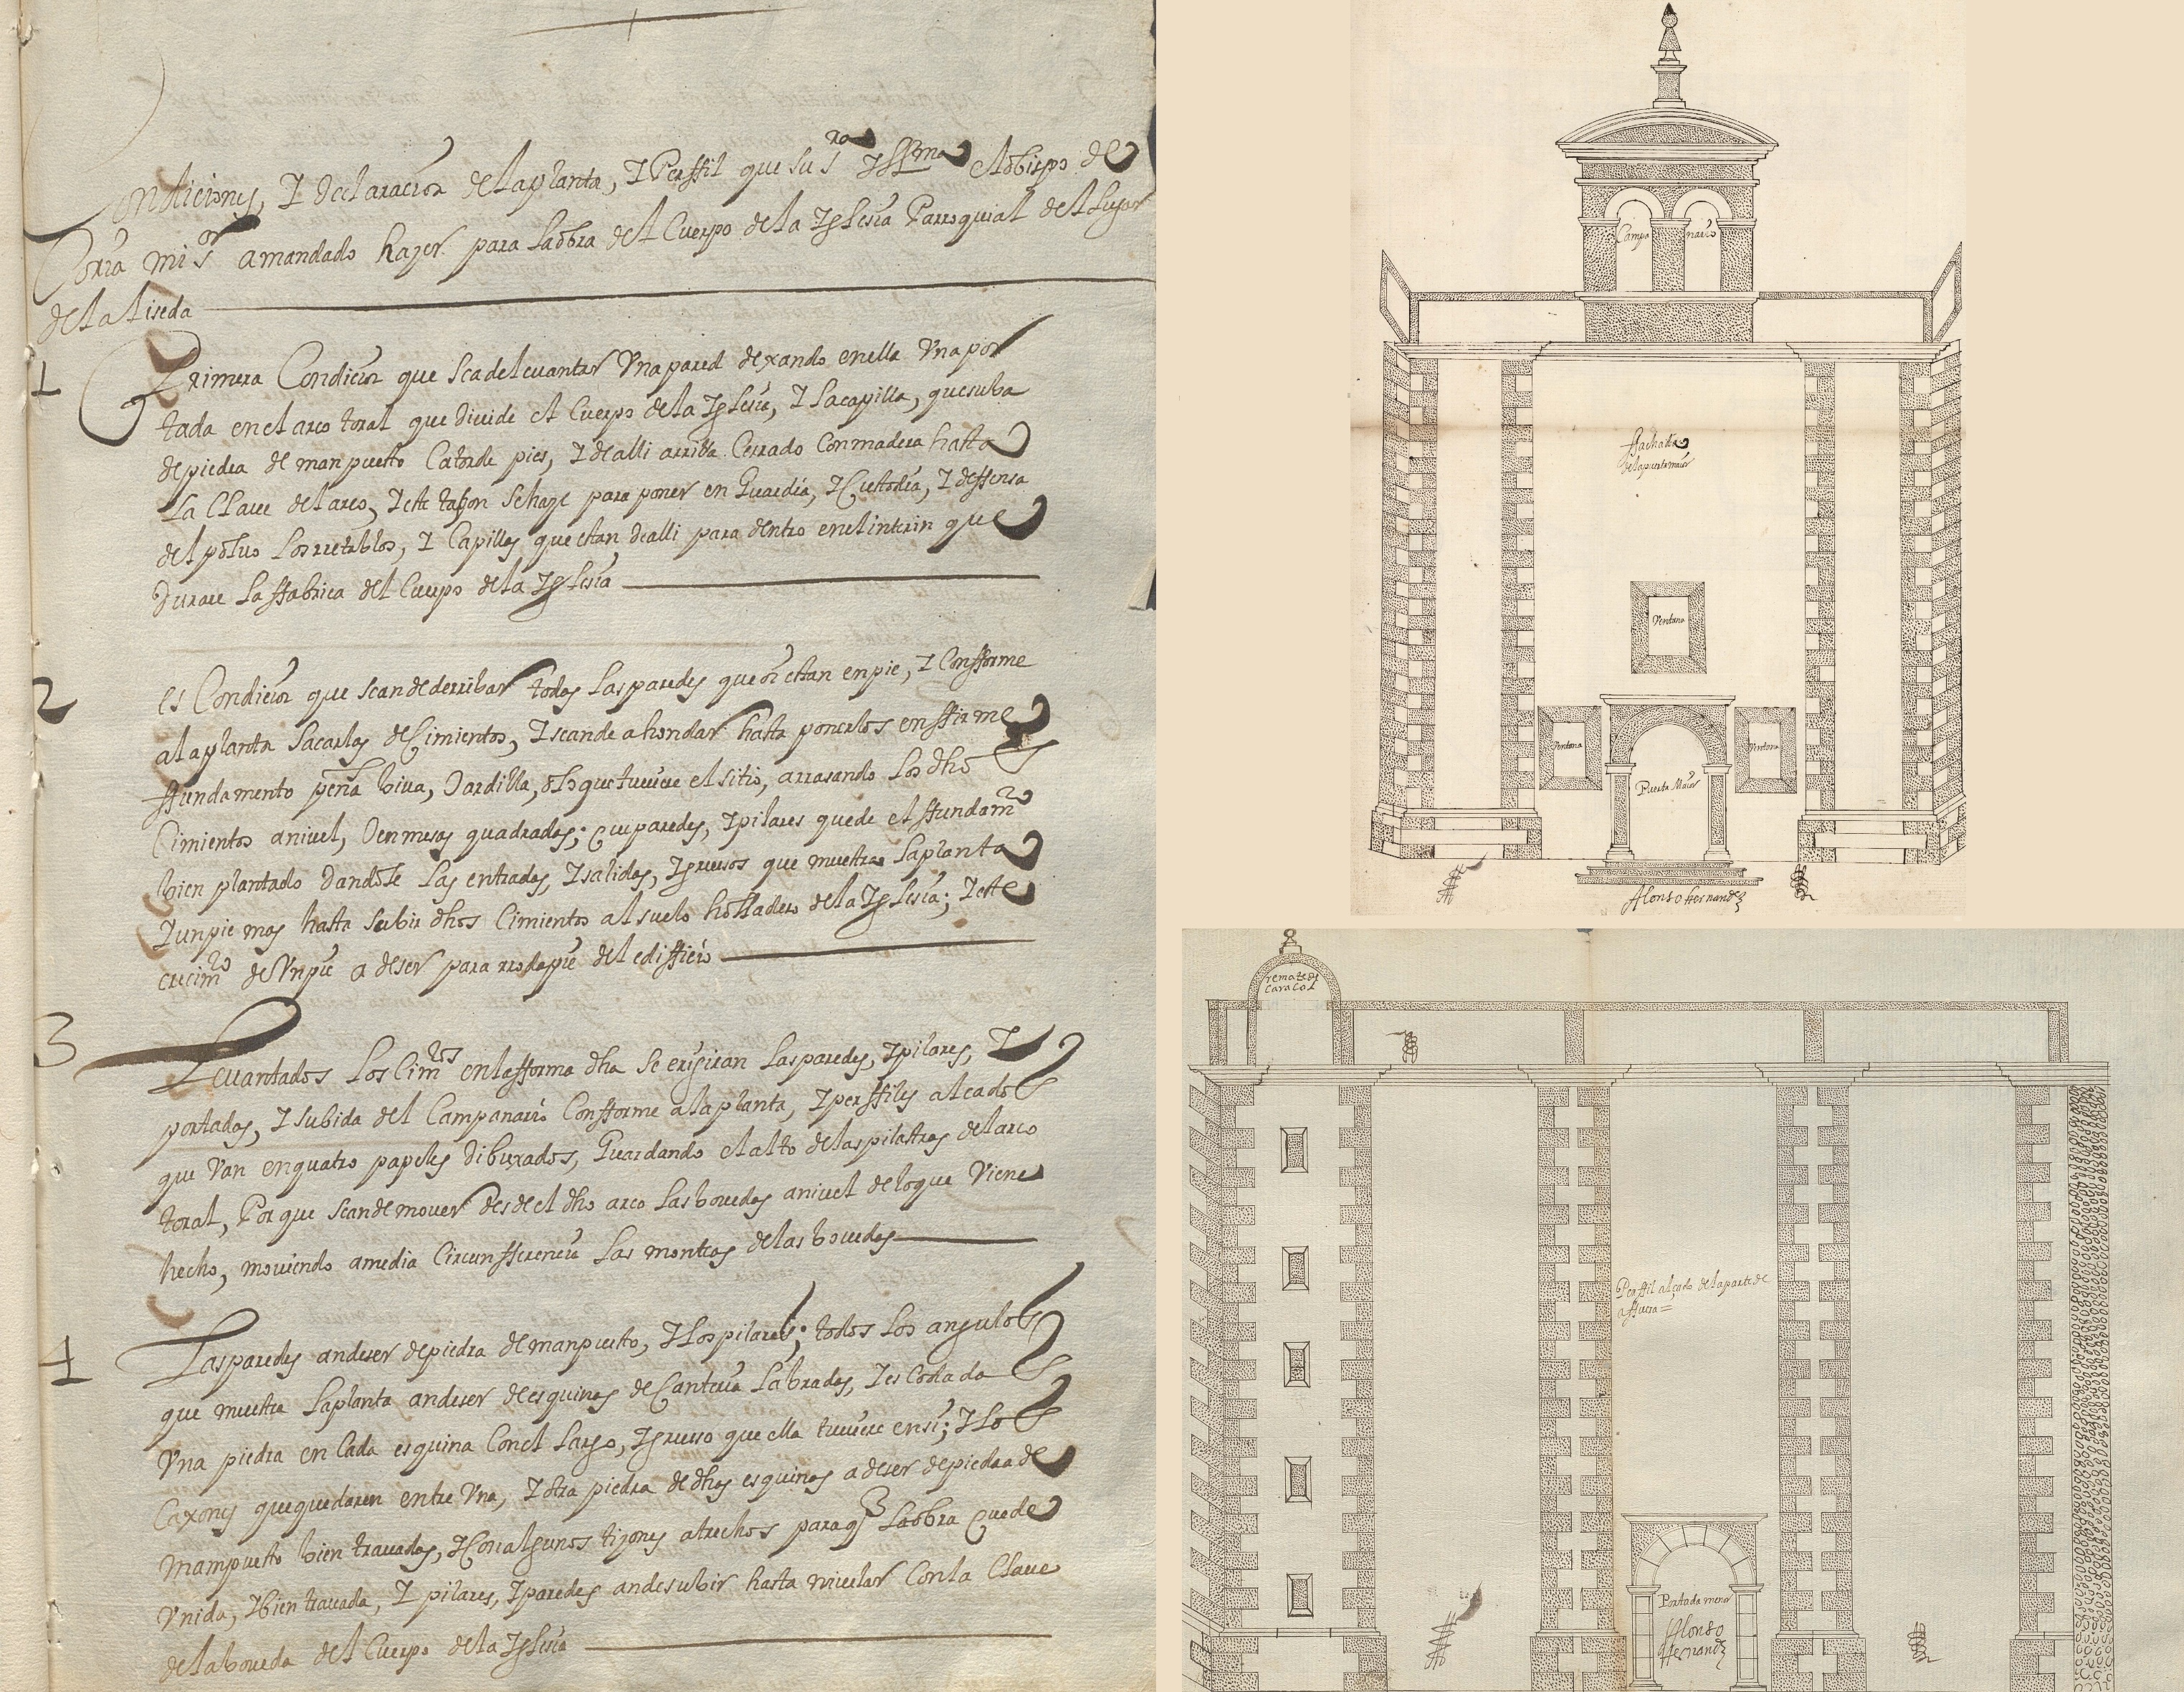 Condiciones, I Declaracion de la planta, I Perffil que su sra Illma el obispo de
Coria mi sor a mandado hazer para la obra del Cuerpo de la Iglesia Parroquial del lugar
de la liseda
1 Primera Condicion que sea de leuantar Vna pared dexando en ella Vna por
tada en el arco toral que diuide el Cuerpo de la Iglesia, I la capilla, que suba
de piedra de manpuesto Catorde pies, I de alli arriba Cerrado Con madera hasta
La Claue del arco, I este tapon se haze para poner en Guardia, I Custodia, I deffensa
del poluo Los rretablos, I Capillas que estan de alli para dentro en el interin que
Durare La ffabrica del Cuerpo de la Iglesia
2 es Condicion que sean de derribar todas Las paredes que oi estan en pie, I Confforme
a la planta Sacarlas de Cimientos, I sean de ahondar hasta ponerlos en ffirme
ffundamento peña biua, O ardilla, o lo que tuuiere el sitio, arrasando Los dhos
Cimientos a niuel, O en mesas quadradas; que paredes, I pilares quede el ffundamto
bien plantado Dandole Las entradas, I salidas, I gruesos que muestra La planta
I un pie mas hasta subir dhos Cimientos al suelo holladero de la Iglesia; I este
crecimto de Vn pie a de ser para rrodapie del edifficio
3 Leuantados Los Cimtos en la fforma dha Se erigiran Las paredes, I pilares, I
portadas, I subida del Campanario Confforme a la planta, I perffiles alcados
que Van en quatro papeles Dibuxados, Guardando el alto de las pilastras del arco
toral, Por que sean de mouer desde el dho arco Las bouedas a niuel de lo que Viene
hecho, mouiendo a media Circunfferencia Las monteas de las bouedas
4 Las paredes an de ser de piedra de manpuesto, I Los pilares; todos Los angulos
que muestra La planta an de ser de esquinas de Canteria Labradas, I escodada
Vna piedra en Cada esquina Con el Largo, I grueso que ella tuuiere en si; I Los
Caxones que quedaren entre Vna, I otra piedra de dhas esquinas a de ser de piedra de
Mampuesto bien trauadas, I Con algunos tizones a trechos para q La obra quede
Vnida, I bien trauada, I pilares, I paredes an de subir hasta niuelar Con la Claue
de la boueda del Cuerpo de la Iglesia
Campa nario
ffachatta
de la puerta maior
Ventana
Ventana
Ventana
Puerta Maior
Alonso Hernandez
remate de
caracol
Perffil alçado de la parte de
affuera=
Portada menor
Alonso
Hernandz